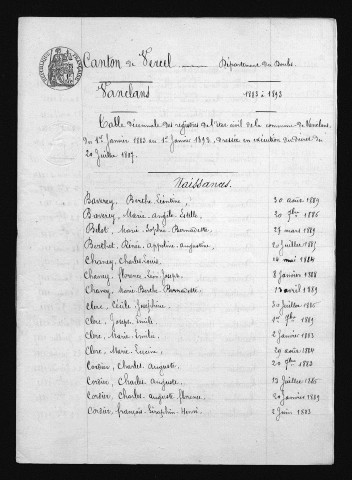 Canton de Vercel — Département du Doubs.
Vanclans 1883 à 1893
Table décennale des registres de l'état civil de la commune de Vanclans,
du 1er Janvier 1883 au 1er Janvier 1893, dressée en exécution du décret du
20 Juillet 1807.
Naissances.
Baverey, Berthe Léontine, 30 août 1889
Baverey, Marie Angèle Estelle 20 9bre 1886
Belot, Marie Sophie Bernadette 28 mars 1889
Berthet, Appoline Augustine, 20 Juillet 1887
Charles Louis 16 mai 1884
Florence Léon Joseph 8 Janvier 1888
Marie Berthe Bernadette 13 avril 1889
Clerc, Cécile Joséphine 30 Juillet 1885
Clerc, Joseph Emile 1889
Clerc, Marie Emilia 2 Janvier 1883
Clerc, Marie 29 août 1884
Cordier, Charles Auguste 1883
Cordier, Charles Auguste 13 Juillet 1885
Cordier, Charles Auguste Florence 20 Janvier 1889
Cordier, François Séraphin Henri 2 Juin 1883